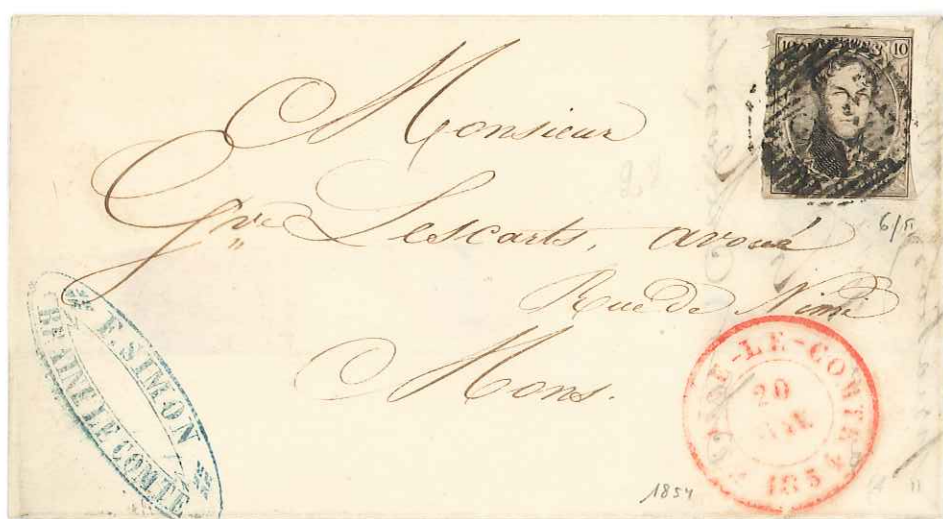 10 10
6/
Monsieur
Gve Lescarts, avoué
Rue de Nimi
Mons.
* F. SIMON *
BRAINE LE COMTE
-LE-COMTE
20
1854
1854